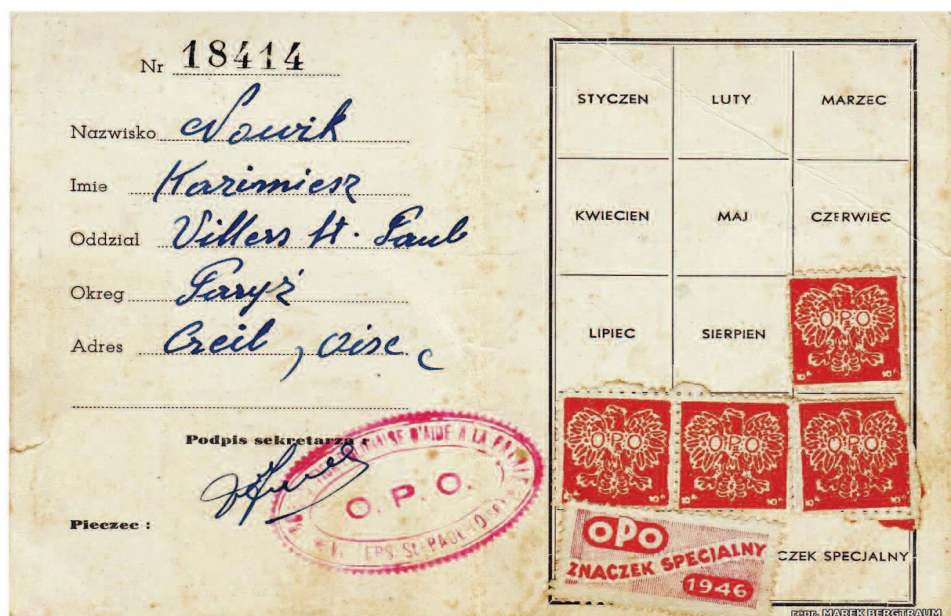 Nr 18414
Nazwisko Nowik
Imie Kazimiesz
Oddzial Villers St. Paul
Okreg Paryż
Adres Creil, Oise
Podpis sekretarza :
D'AIDE A LA
O. P. O.
Pieczec :
STYCZEN LUTY MARZEC
KWIECIEN MAJ CZERWIEC
LIPIEC SIERPIEN
OPO
10 10
OPO OPO OPO
10 10 10
OPO
ZNACZEK SPECIALNY
1946
CZEK SPECJALNY
repr. MAREK BERGTRAUM